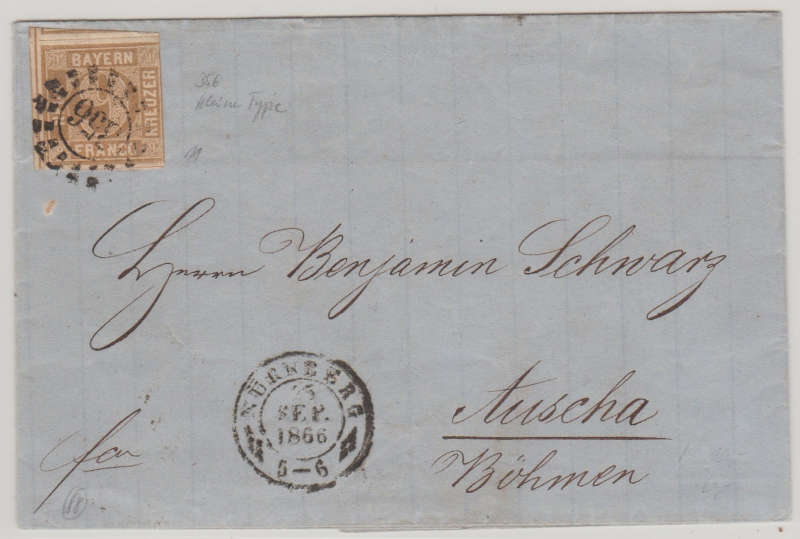 BAYERN
KREUZER
FRANCO
356
356
kleine Type
Herrn Benjamin Schwarz
NÜRNBERG
25
SEP.
1866
5-6
Auscha
Böhmen
fco
88